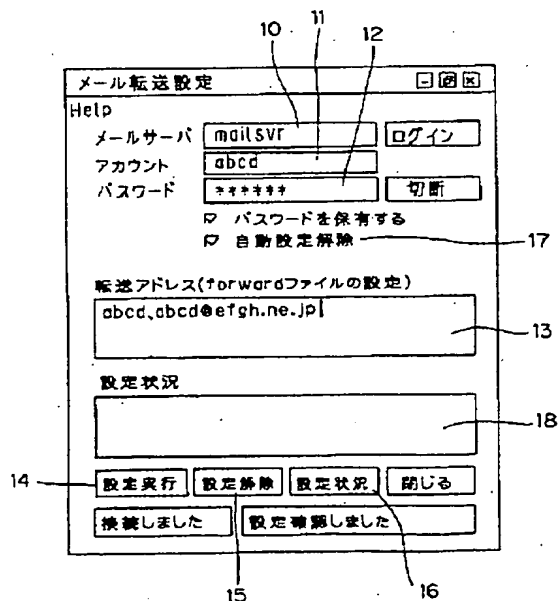 10
11
12
メール転送設定
Help
メールサーバ mailsvr ログイン
アカウント abcd
パスワード ****** 切断
パスワードを保有する
自動設定解除
17
転送アドレス(forwardファイルの設定)
abcd、abcd@efgh.ne.jp
13
設定状況
18
14
設定実行 設定解除 設定状況 閉じる
接続しました 設定確認しました
15
16